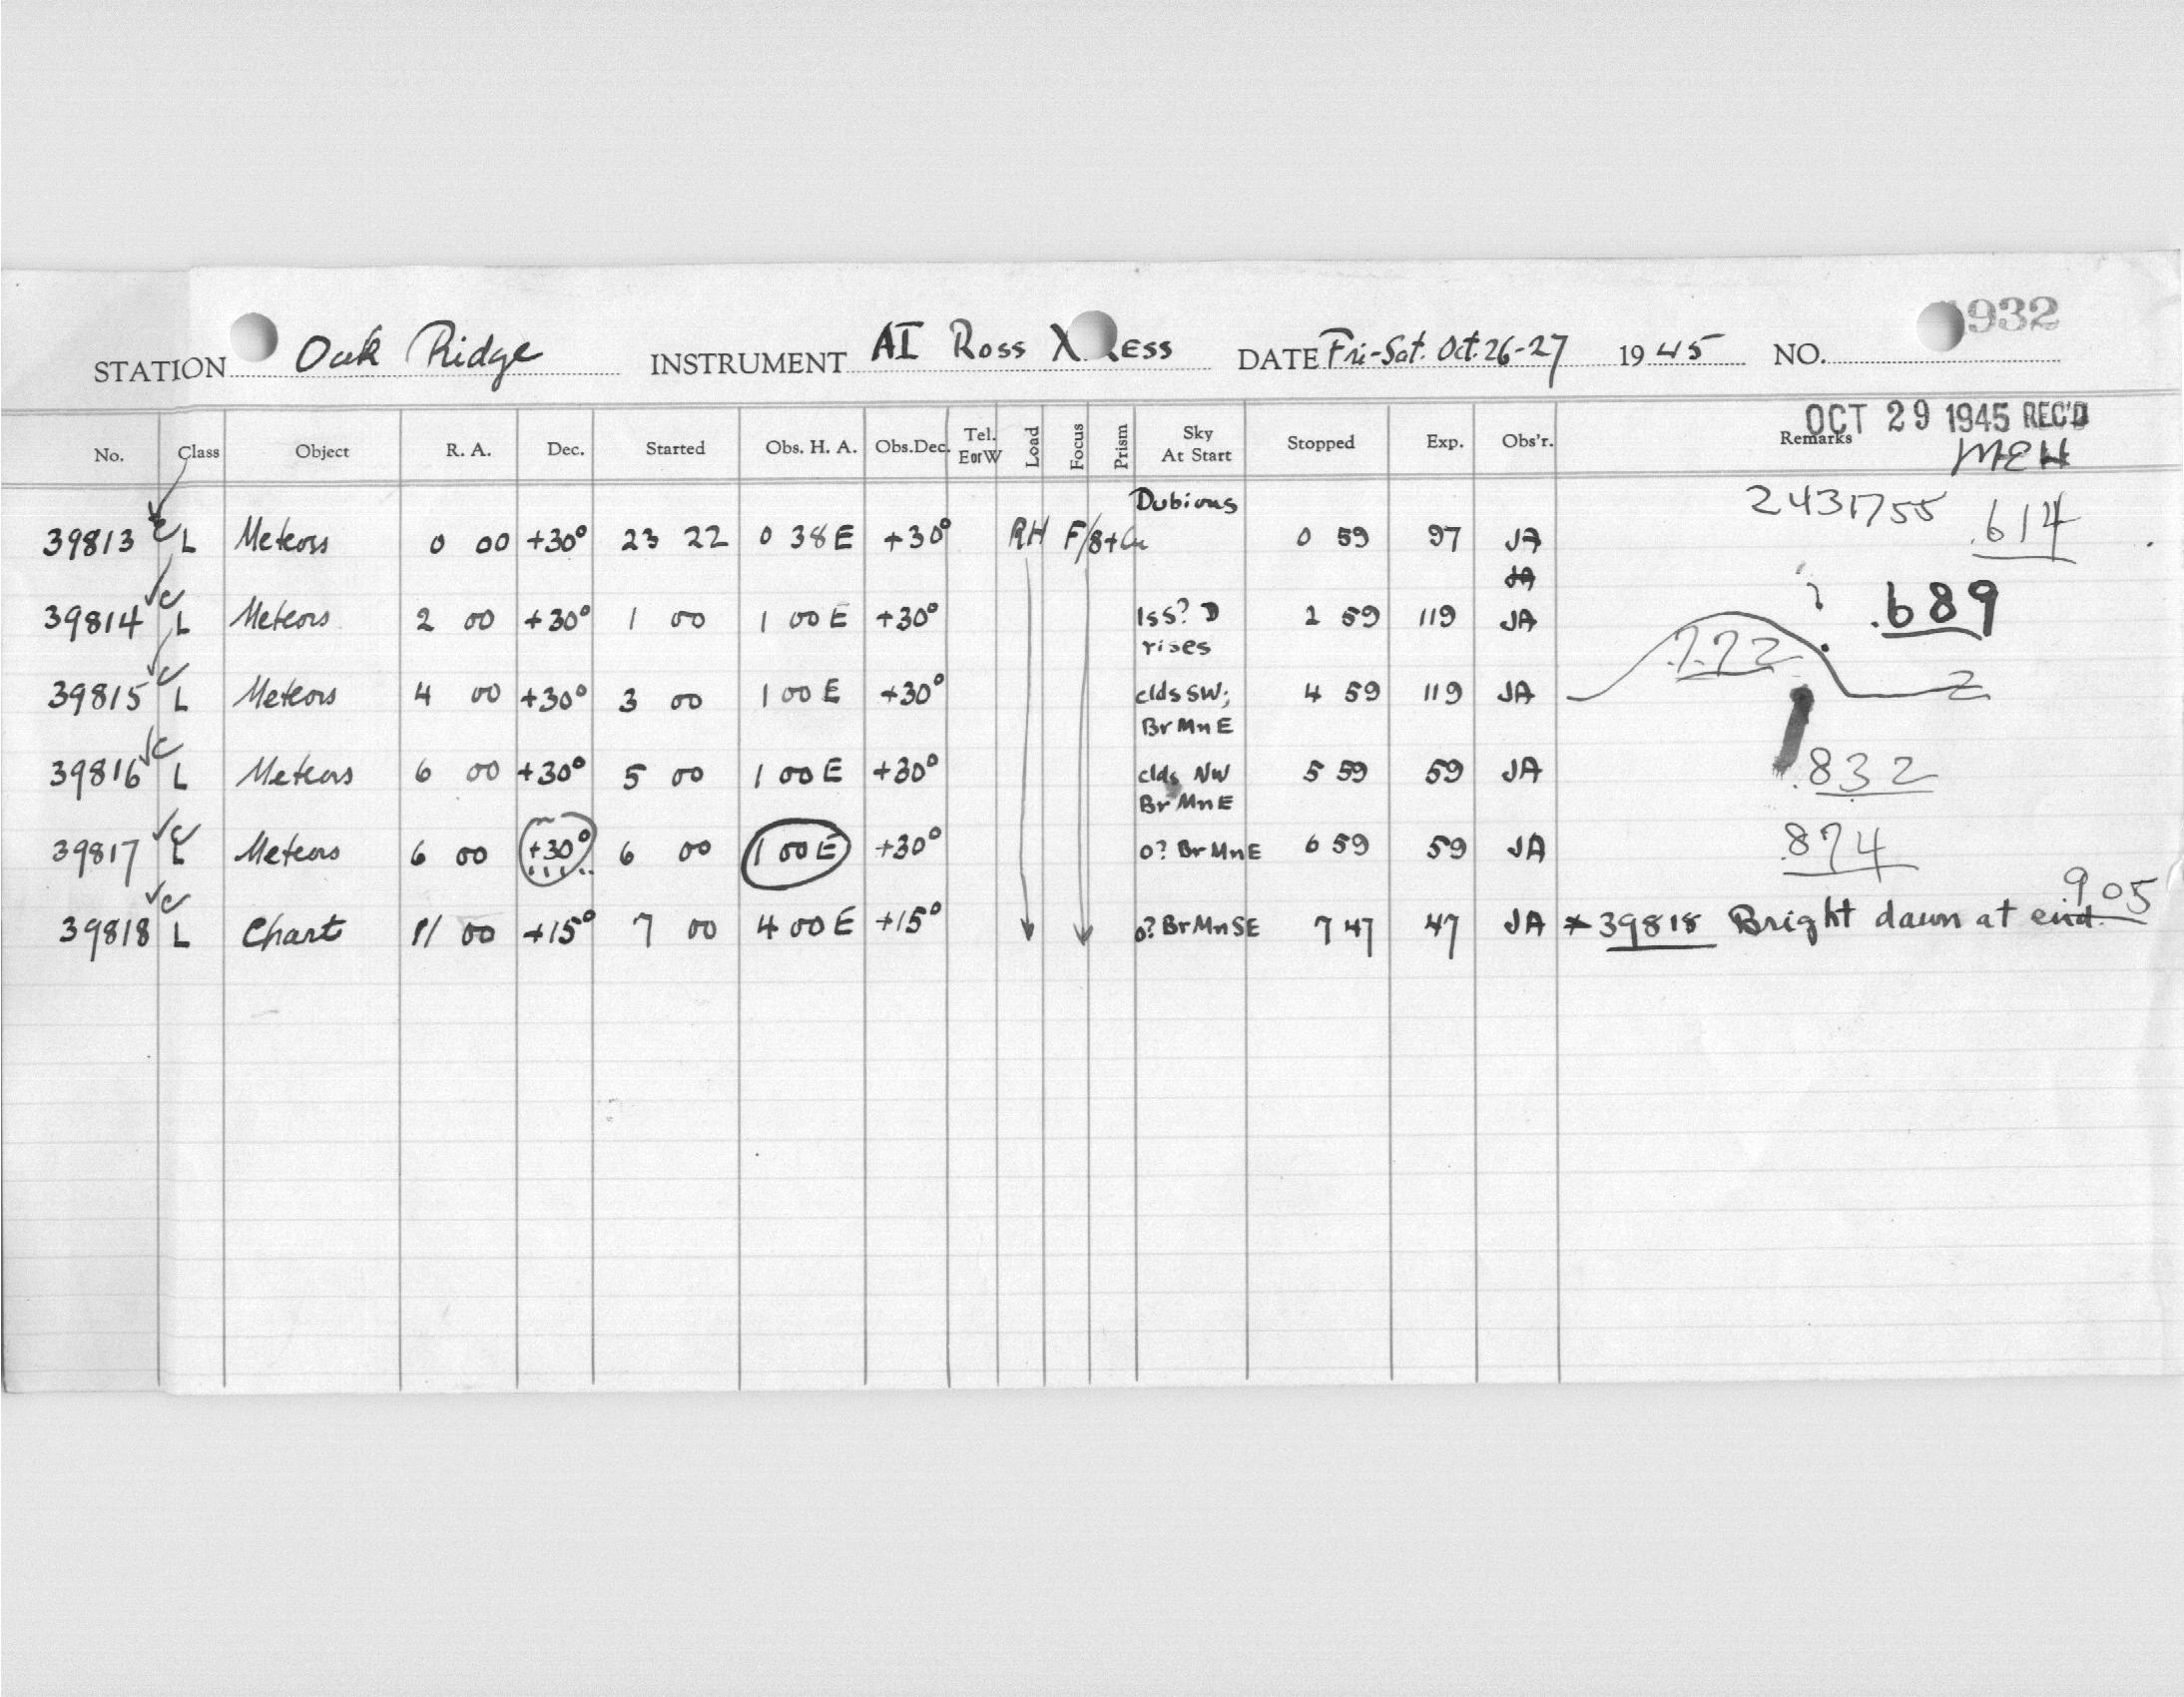 932
STATION Oak Ridge INSTRUMENT AI Ross X ess DATE Fri-Sat. Oct. 26-27 1945 NO.
OCT 29 1945 REC'D
No. Class Object R. A. Dec. Started Obs. H. A. Obs.Dec. Tel. EorW Load Focus Prism Sky At Start Stopped Exp. Obs'r. Remarks
MEH
Dubious
39813 c L Meteors 0 00 +30° 23 22 0 38E +30° RH F/8+ 0 59 97 JA 2431755 .614
JA
39814 c L Meteors 2 00 +30° 1 00 1 00 E +30° Iss? D 2 59 119 JA .689
rises .772
39815 c L Meteors 4 00 +30° 3 00 1 00 E +30° clds SW; 4 59 119 JA
Br Mn E
39816 c L Meteors 6 00 +30° 5 00 1 00 E +30° clds NW 5 59 59 JA .832
Br Mn E
39817 c L Meteors 6 00 +30° 6 00 1 00 E +30° o? Br Mn E 6 59 59 JA .874
905
39818 c L Chart 11 00 +15° 7 00 4 00 E +15° o? Br Mn SE 7 47 47 JA * 39818 Bright dawn at end.